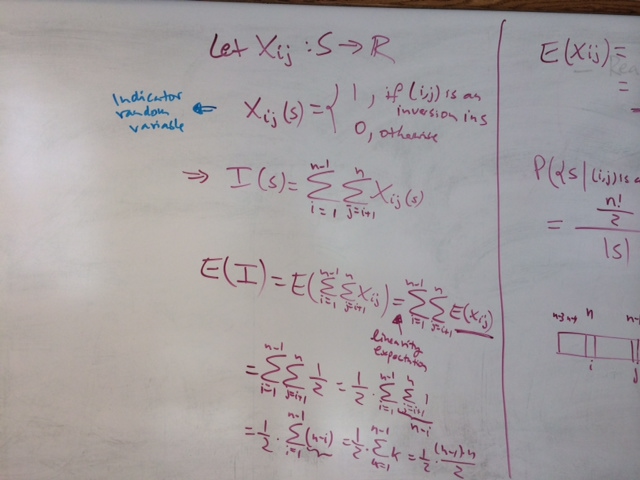 Let Xij : S → ℝ
Indicator
random
variable
←
Xij(s) = { 1, if (i,j) is an
inversion in s
0, otherwise
⇒ I(s) = ∑_{i=1}^{n-1} ∑_{j=i+1}^{n} Xij(s)
E(I) = E(∑_{i=1}^{n-1} ∑_{j=i+1}^{n} Xij) = ∑_{i=1}^{n-1} ∑_{j=i+1}^{n} E(Xij)
linearity
expectation
= ∑_{i=1}^{n-1} ∑_{j=i+1}^{n} 1/2 = 1/2 · ∑_{i=1}^{n-1} ∑_{j=i+1}^{n} 1
n-i
= 1/2 · ∑_{i=1}^{n-1} (n-i) = 1/2 · ∑_{k=1}^{n-1} k = 1/2 · (n-1)n/2
E(Xij) =
=
P({s | (i,j) is
= (n!/2)/|S|
n
i
j